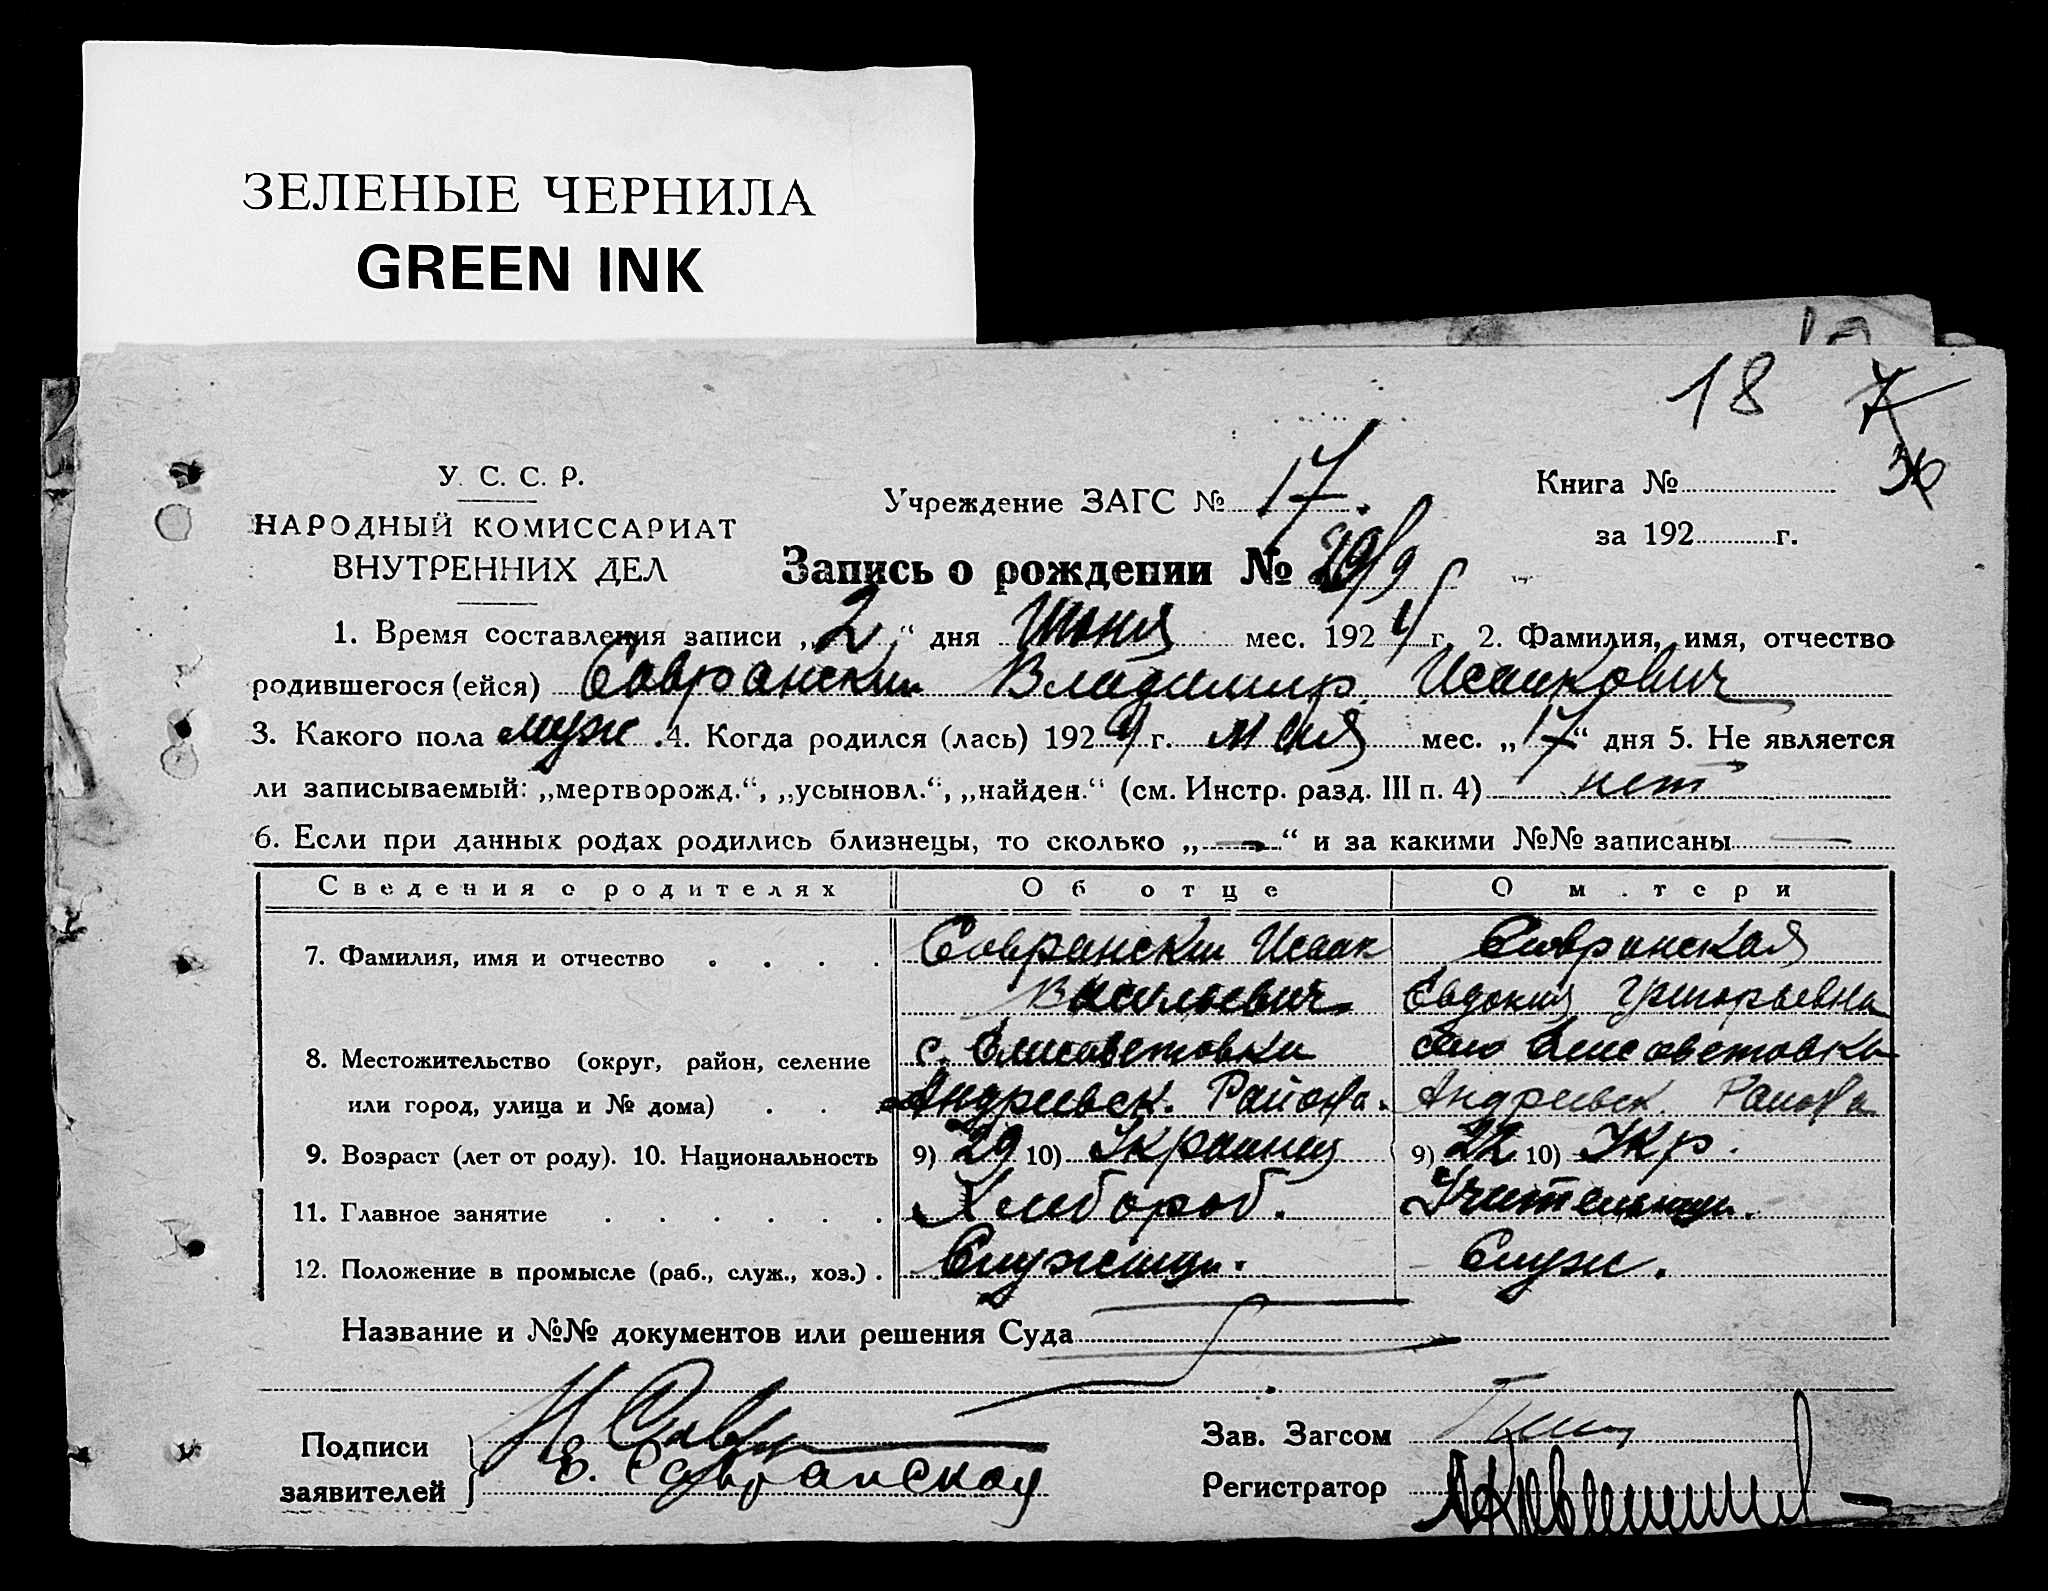 ЗЕЛЕНЫЕ ЧЕРНИЛА
GREEN INK
18 7
36
У. С. С. Р.
НАРОДНЫЙ КОМИССАРИАТ
ВНУТРЕННИХ ДЕЛ
Учреждение ЗАГС № 17.
Книга №
за 192 г.
Запись о рождении № 29/9
1. Время составления записи „2“ дня Июня мес. 1924 г. 2. Фамилия, имя, отчество
родившегося (ейся) Савранский Владимир Исаакович
3. Какого пола муж. 4. Когда родился (лась) 1924 г. мая мес. „17“ дня 5. Не является
ли записываемый: „мертворожд.“, „усыновл.“, „найден.“ (см. Инстр. разд. III п. 4) нет
6. Если при данных родах родились близнецы, то сколько „—“ и за какими №№ записаны —
Сведения о родителях Об отце О м тери
7. Фамилия, имя и отчество . . . . Савранский Исаак Савранская
Васильевич Евдокия Григорьевна
8. Местожительство (округ, район, селение с. Елисаветовки село Елисаветовка
или город, улица и № дома) . . . Андреевск. Района. Андреевск. Района
9. Возраст (лет от роду). 10. Национальность 9) 29 10) Украинец 9) 22 10) Укр.
11. Главное занятие . . . . . . Хлебороб. Учительница.
12. Положение в промысле (раб., служ., хоз.) . Служащ. Служ.
Название и №№ документов или решения Суда
Подписи
заявителей
И Савр
Е. Савранская
Зав. Загсом
Регистратор